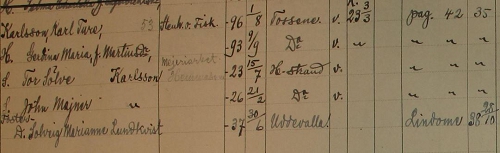 Karlsson Karl Ture, 53 Stenh. o. Fisk. -96 1/8 Tossene v. 23 3/3 pag. 42 35
H. Gerdina Maria, f. Martins Dr, -93 9/9 Do v. " " " "
S. Tor Sölve Karlsson -23 15/7 H-strand v. " " "
S. John Majner " -26 21/2 Do v. " " "
Foster-
D. Solvig Marianne Lundkvist -37 30/6 Uddevalla Lindome 38 25/10